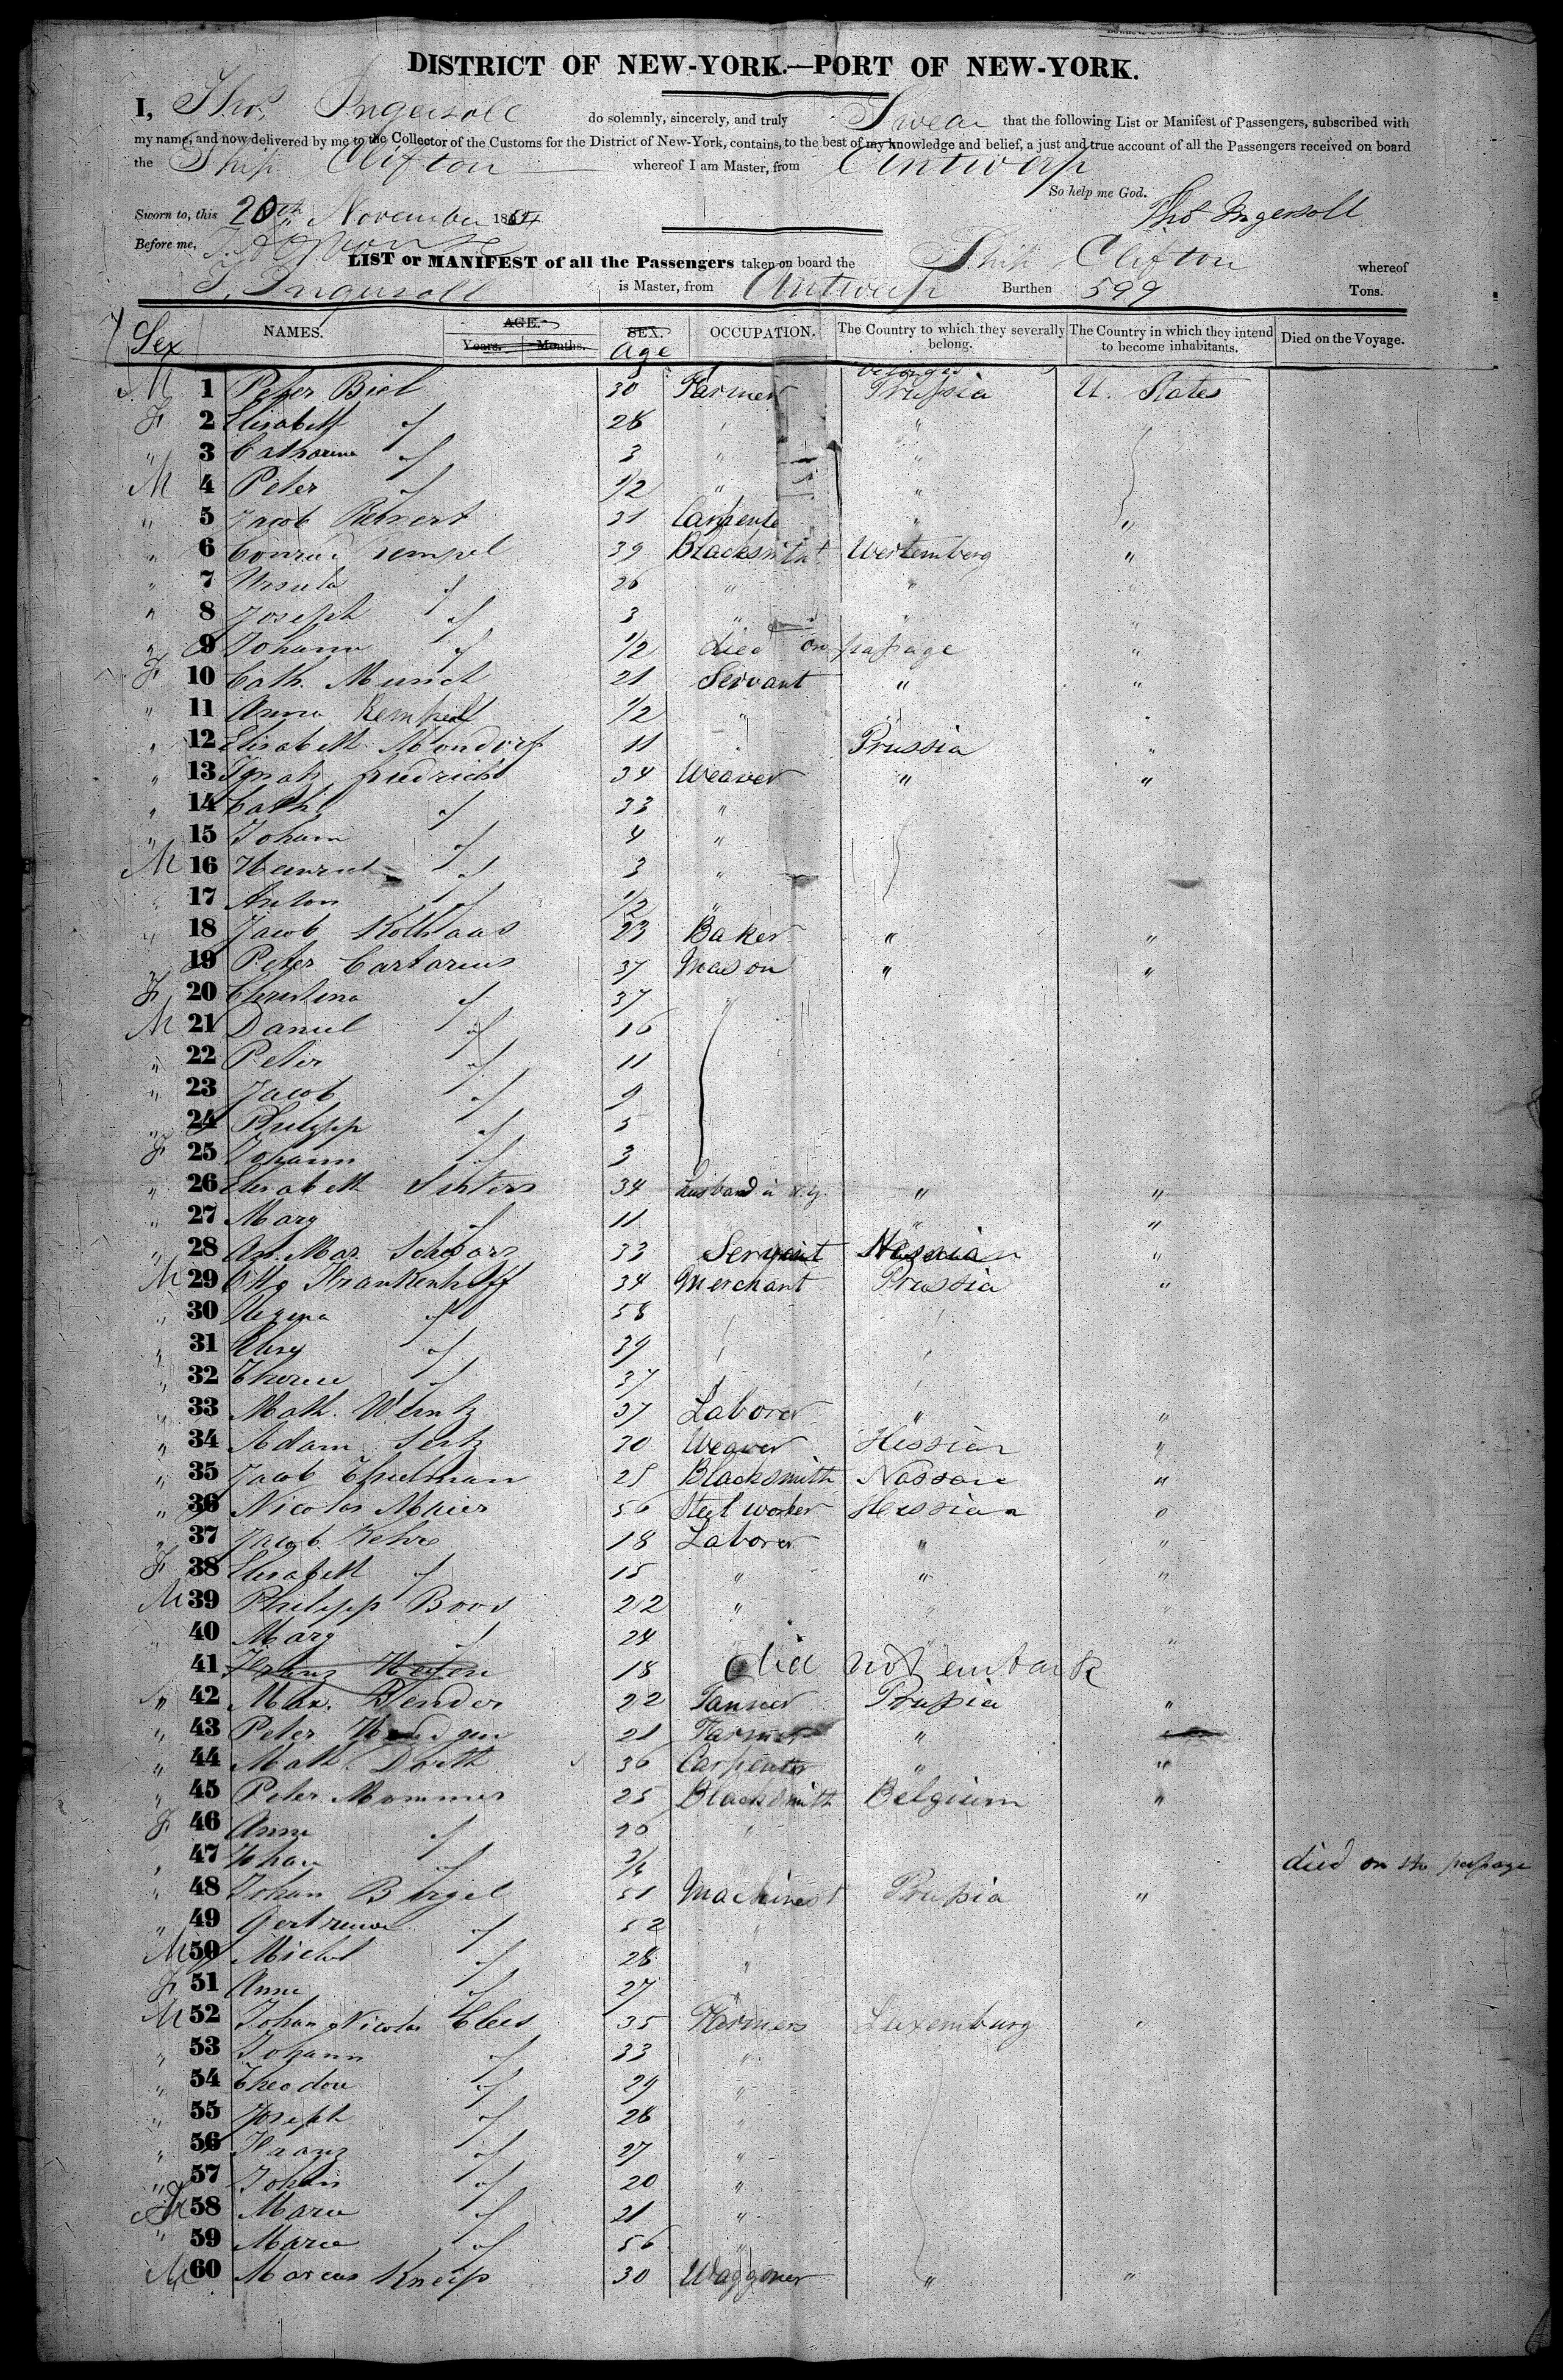 DISTRICT OF NEW-YORK.—PORT OF NEW-YORK.
I, Thos. Ingersoll do solemnly, sincerely, and truly Swear that the following List or Manifest of Passengers, subscribed with
my name, and now delivered by me to the Collector of the Customs for the District of New-York, contains, to the best of my knowledge and belief, a just and true account of all the Passengers received on board
the Ship Clifton whereof I am Master, from Antwerp
So help me God.
Sworn to, this 20th November 18 Thos Ingersoll
Before me,
LIST or MANIFEST of all the Passengers taken on board the Ship Clifton whereof
T. Ingersoll is Master, from Antwerp Burthen 599 Tons.
Sex NAMES. AGE. Years. Months. SEX. Age OCCUPATION. The Country to which they severally belong. The Country in which they intend to become inhabitants. Died on the Voyage.
belonged
M 1 Peter Biel 30 Farmer Prussia U. States
F 2 Elisabeth " 28 " "
" 3 Catharina " 3 " "
M 4 Peter " 1/2 " "
" 5 Jacob 31 Carpenter " "
" 6 Conrad Rempel 39 Blacksmith Wertemberg "
" 7 Ursula " 26 " " "
" 8 Joseph " 3 " " "
" 9 Johann " 1/2 died on passage "
F 10 Cath. Munch 21 Servant " "
" 11 Anna Rempel 1/2 " " "
" 12 Elisabeth Mondorf 11 " Prussia "
" 13 Ignatz Friedrich 34 Weaver " "
" 14 Cath. " 33 "
" 15 Johann " 4 "
M 16 Heinrich " 3 "
" 17 Anton " 1/2 "
" 18 Jacob Kolhaas 23 Baker " "
" 19 Peter Cartarius 37 Mason " "
F 20 Christina " 37 "
M 21 Daniel " 16
" 22 Peter " 11
" 23 Jacob " 9
" 24 Philipp " 5
F 25 Johann " 3
" 26 Elisabeth 34 husband in N.Y. " "
" 27 Marg " 11 " "
" 28 An. Mar. Schwarz 33 Servant "
M 29 Otto Frankenhoff 34 Merchant Prussia "
" 30 Regina " 58 " "
" 31 " 39 " "
" 32 Therese " 37 " "
" 33 Math. Wentz 37 Laborer " "
" 34 Adam Seitz 20 Weaver Hessian "
" 35 Jacob Thielman 25 Blacksmith Nassau "
" 36 Nicolas Maier 56 Steel worker Hessian "
" 37 Jacob Kehre 18 Laborer " "
F 38 Elisabeth " 15 " " "
M 39 Philipp Boos 22 " " "
" 40 Marg " 24 " "
41 Franz 18 did not embark
" 42 Max. Bender 22 Tanner Prussia "
" 43 Peter 21 Farmer "
" 44 Math. Dorth 36 Carpenter " "
" 45 Peter Mommer 25 Blacksmith Belgium "
F 46 Anna " 20 "
" 47 Johan " 3/4 died on the passage
" 48 Johan Birgel 51 Machinest Prussia "
" 49 Gertrude " 52 "
M 50 Michel " 28 "
F 51 Anna " 27 "
M 52 Johan Nicolas Clees 35 Farmers Luxemburg "
" 53 Johann " 33 "
" 54 Theodor " 29 "
" 55 Joseph " 28 "
" 56 Franz " 27 "
" 57 Johan " 20 "
F 58 Marie " 21 "
" 59 Marie " 56 "
M 60 Marcus Kneip 30 Waggoner " "